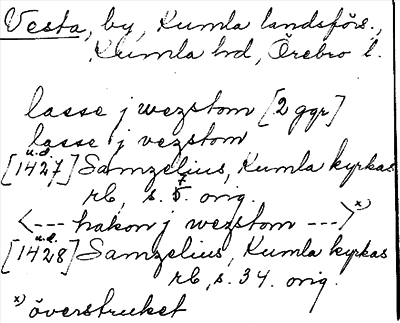 Vesta, by, Kumla landsförs.,
Kumla hd, Örebro l.
lasse j wezstom [2 ggr]
lasse j vezstom
u.d.
[1427] Samzelius, Kumla kyrkas
rb, s. 5. orig.
<--- hakon j wezstom --->x)
u.d.
[1428] Samzelius, Kumla kyrkas
rb, s. 34. orig.
x) överstruket